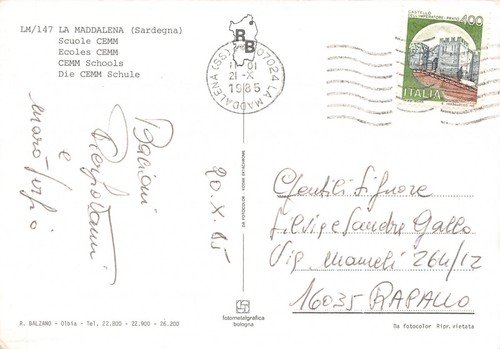 LM/147 LA MADDALENA (Sardegna)
Scuole CEMM
Ecoles CEMM
CEMM Schools
Die CEMM Schule
RB
07024 LA MADDALENA (SS)
21-X
1985
CASTELLO
DELL'IMPERATORE - PRATO
400
ITALIA
Bacioni
Piergiovanni
e
20.X.85
Gentili Signore
Silvia e Sandra Gallo
Via Mameli 264/12
16035 RAPALLO
DA FOTOCOLOR - VIETATA RIPRODUZIONE
fotometalgrafica
bologna
R. BALZANO - Olbia - Tel. 22.800 - 22.900 - 26.200
Da fotocolor Ripr.vietata